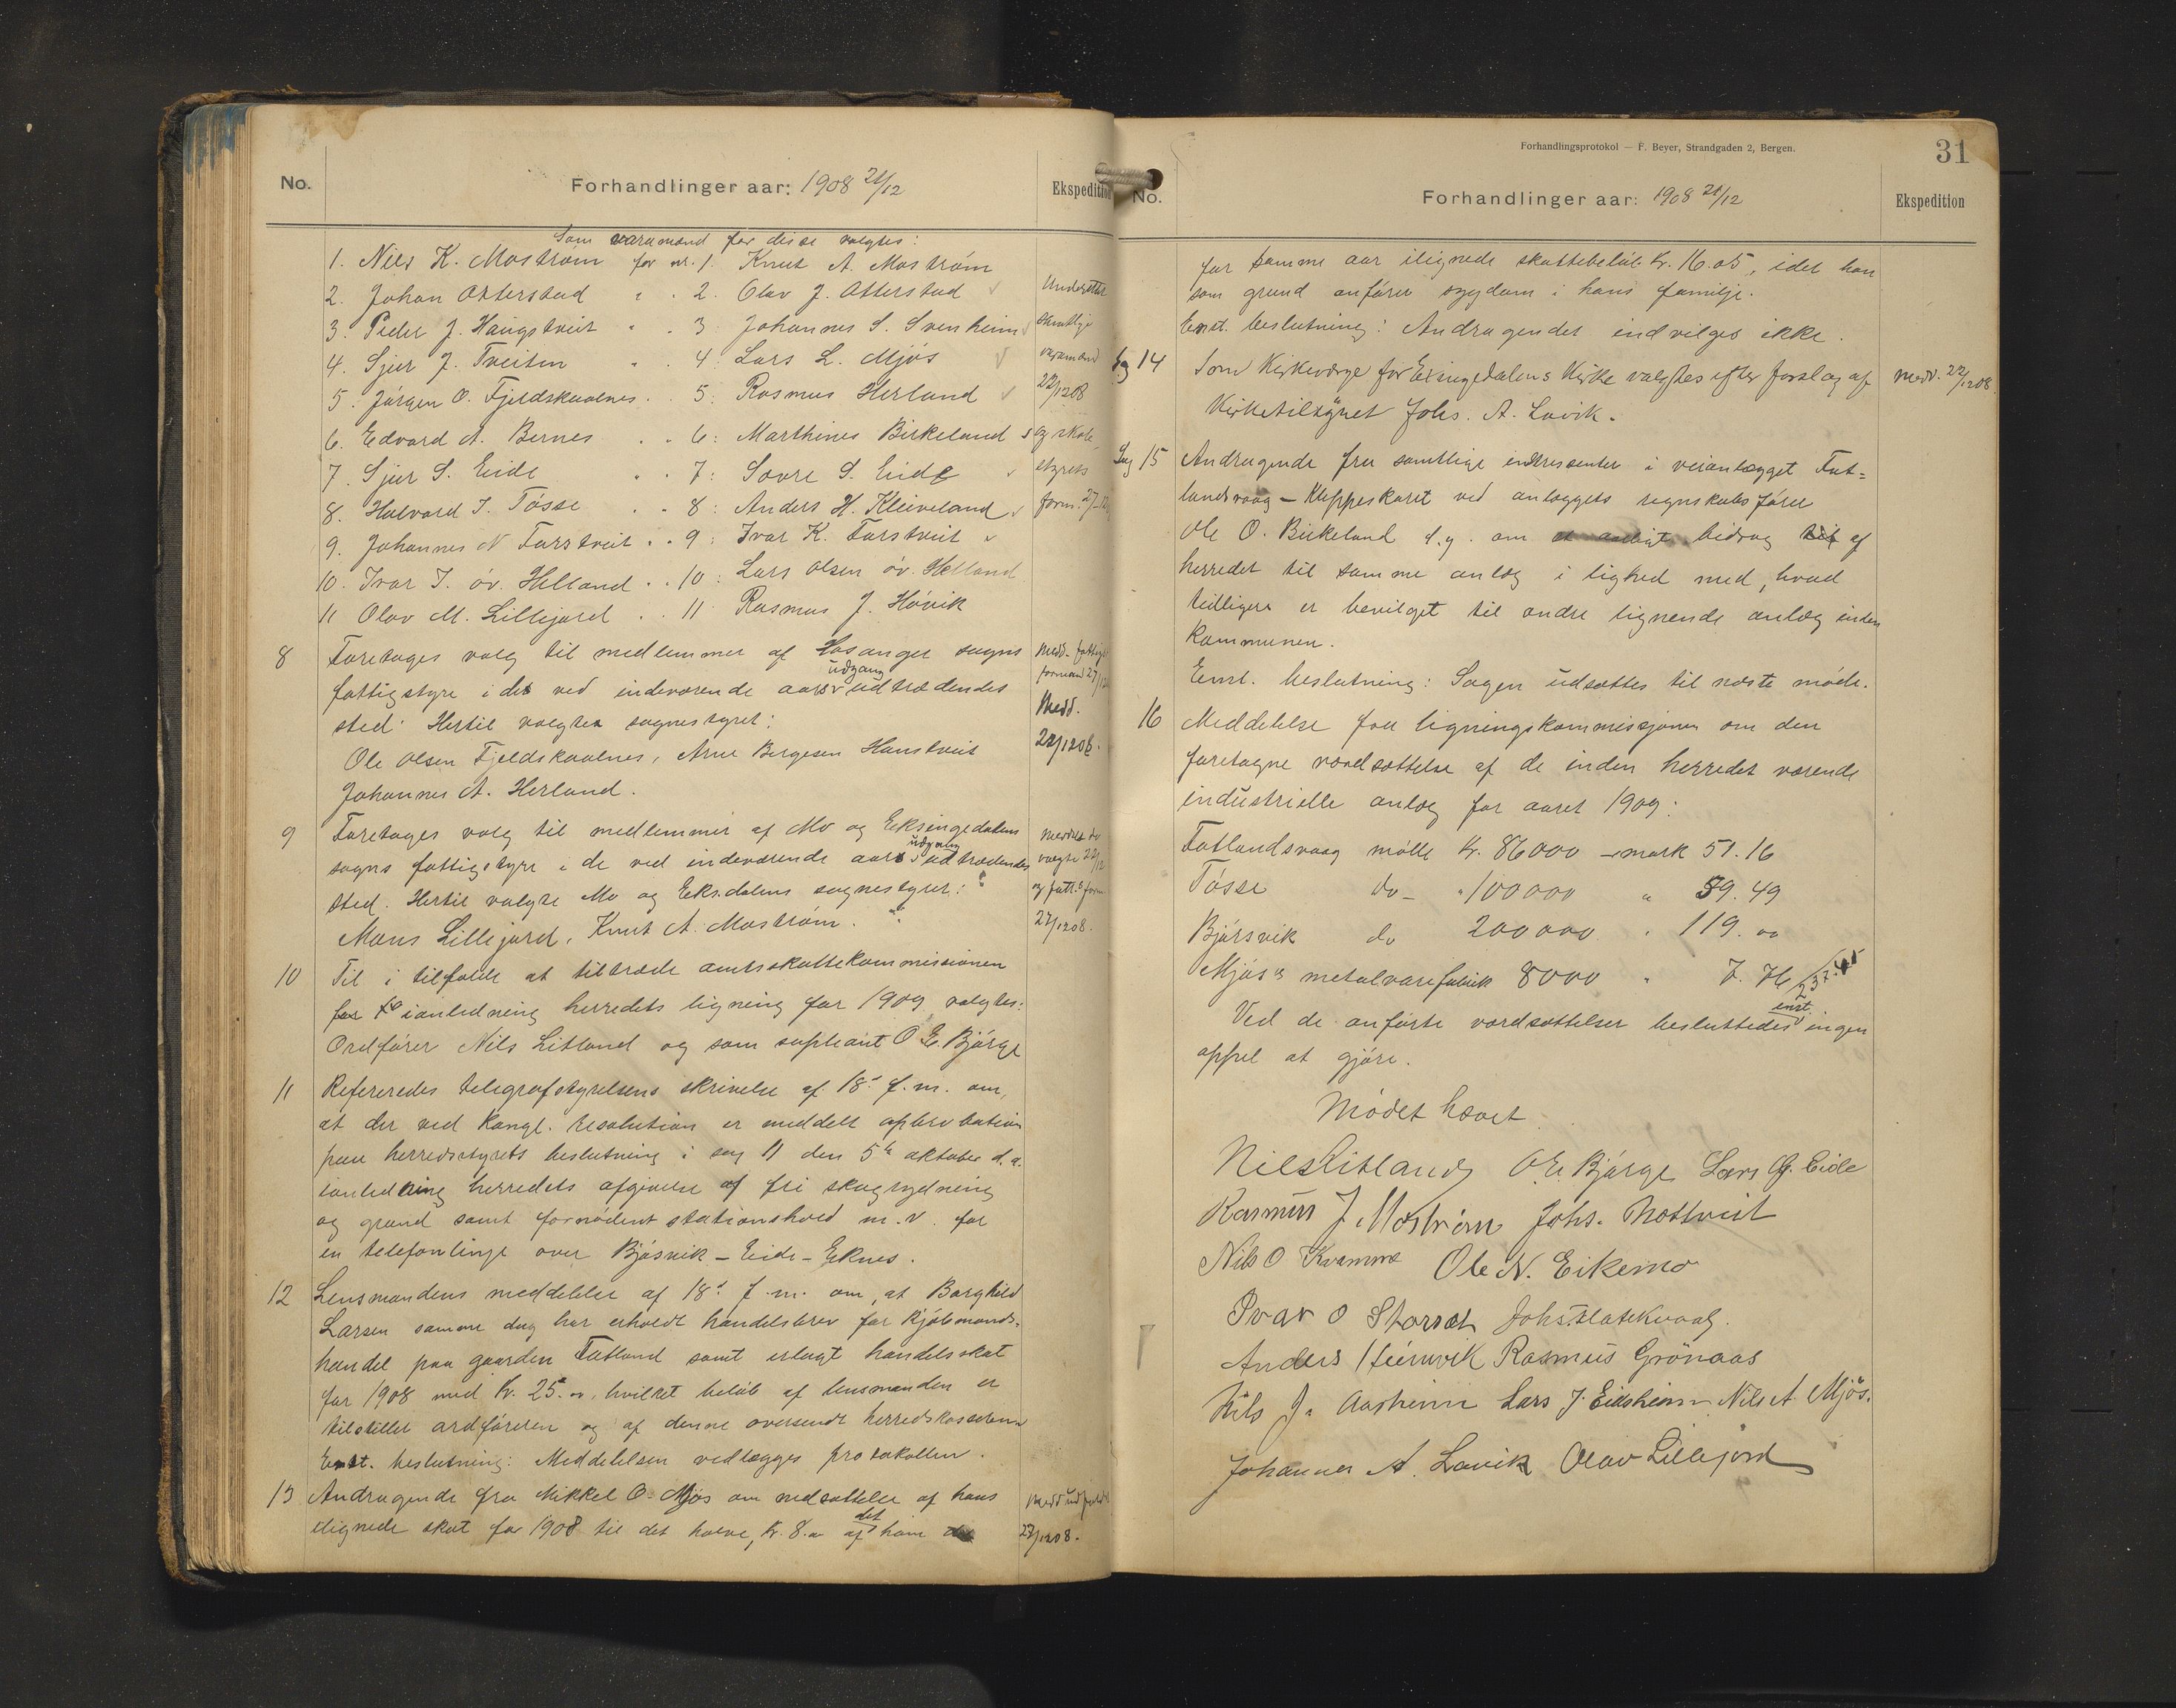 No.
Forhandlinger aar: 1908 21/12
Ekspedition
Som varamænd for disse valgtes:
1. Nils K. Mostrøm for nr. 1. Knut A. Mostrøm
2. Johan Otterstad " . 2. Olav J. Otterstad
3. Peder J. Haugstveit " . 3: Johannes S. Svenheim
4. Sjur J. Tveiten " . 4: Lars L. Mjøs
5. Jørgen O. Fjeldskaalnes . 5: Rasmus Herland
6. Edvard A. Bernes . . 6: Marthines Birkeland
7. Sjur S. Eide . . 7: Sovre S. Eide
8. Halvard I. Tøsse . . 8: Anders H. Kleiveland
9. Johannes N Farstveit . . 9: Ivar K. Farstveit
10. Ivar I. øv. Helland . . 10: Lars Olsen øv. Helland
11 Olav M. Lillejord . . 11 Rasmus J. Høvik
Underrettet
samtlige
varamænd
22/12 08
og skole-
styrets
form. 27-12
8 Foretoges valg til medlemmer af Hosanger sogns
fattigstyre i de ved indeværende aars udgang udtrædendes
sted. Hertil valgtes sognestyret:
Ole Olsen Fjeldskaalnes, Arne Bergesen Hanstveit
Johannes A. Herland.
Medd. fattigst
formand 27/12
Medd.
22/12 08.
9 Foretoges valg til medlemmer af Mo og Eksingedalens
sogns fattigstyre i de ved indeværende aars udgang udtrædendes
sted. Hertil valgte Mo og Eksdalens sognestyret:
Mons Lillejord, Knut A. Mostrøm.
Meddelt de
valgte 22/12
og fatt.s form
27/12 08.
10 Til i tilfælde at tiltræde amtsskattekommissionen
ianledning herredets ligning for 1909 valgtes:
Ordfører Nils Litland og som supleant O. E. Bjørge
11 Refereredes telegrafstyrelsens skrivelse af 18' f.m. om,
at der ved kongl. resolution er meddelt approbation
paa herredsstyrets beslutning i sag 11 den 5te oktober d.a.
ianledning herredets afgivelse af fri skogrydning
og grund samt fornødent stationshold m.v. for
en telefonlinje over Bjøsvik – Eide – Eknes.
12 Lensmandens meddelelse af 18' f.m. om, at Borghild
Larsen samme dag har erholdt handelsbrev for kjøbmands-
handel paa gaarden Fatland samt erlagt handelsskat
for 1908 med kr. 25.00, hvilket beløb af lensmanden er
tilstillet ordføreren og af denne oversendt herredskassereren
Enst. beslutning: Meddelelsen vedlægges protokollen.
13 Andragende fra Mikkel O. Mjøs om nedsættelse af hans
ilignede skat for 1908 til det halve, kr. 8.00 af det ham
27/12 08.
Forhandlingsprotokol — F. Beyer, Strandgaden 2, Bergen.
31
No.
Forhandlinger aar: 1908 21/12
Ekspedition
for samme aar ilignede skattebeløb kr. 16.05, idet han
som grund anfører sygdom i hans familje.
Enst. beslutning: Andragendet indvilges ikke.
Sag 14 Som Kirkeværge for Exingedalens Kirke valgtes efter forslag af
Kirketilsynet Johs. A. Lavik.
Medd. 22/12 08.
Sag 15 Andragende fra samtlige interessenter i veianlægget Fat=
landsvaag – Kleppeskaret ved anlæggets regnskabsfører
Ole O. Birkeland d.y. om bidrag af
herredet til samme anlæg i lighed med, hvad
tidligere er bevilget til andre lignende anlæg inden
kommunen.
Enst. beslutning: Sagen udsættes til næste møde.
16 Meddelelse fra ligningskommissjonen om den
foretagne værdsættelse af de inden herredet værende
industrielle anlæg for aaret 1909:
Fatlandsvaag mølle kr. 86000 – mark 51.16
Tøsse do – " 100000 " 59.49
Bjørsvik do 200000 " 119.00
Mjøs's metalvarefabrik 8000 " 7.76 237.41
Ved de anførte værdsættelser besluttedes enst. ingen
appel at gjøre.
Mødet hævet
Nils Litland O. E. Bjørge Lars G. Eide
Rasmus J. Mostrøm Johs. Nottveit
Nils O Kvamme Ole N. Eikemo
Ivar O Storset Johs. Slatekvaal.
Anders Heimvik Rasmus Grønaas
Nils J. Aasheim Lars J. Eidsheim Nils A. Mjøs.
Johannes A. Lavik Olav Lillejord